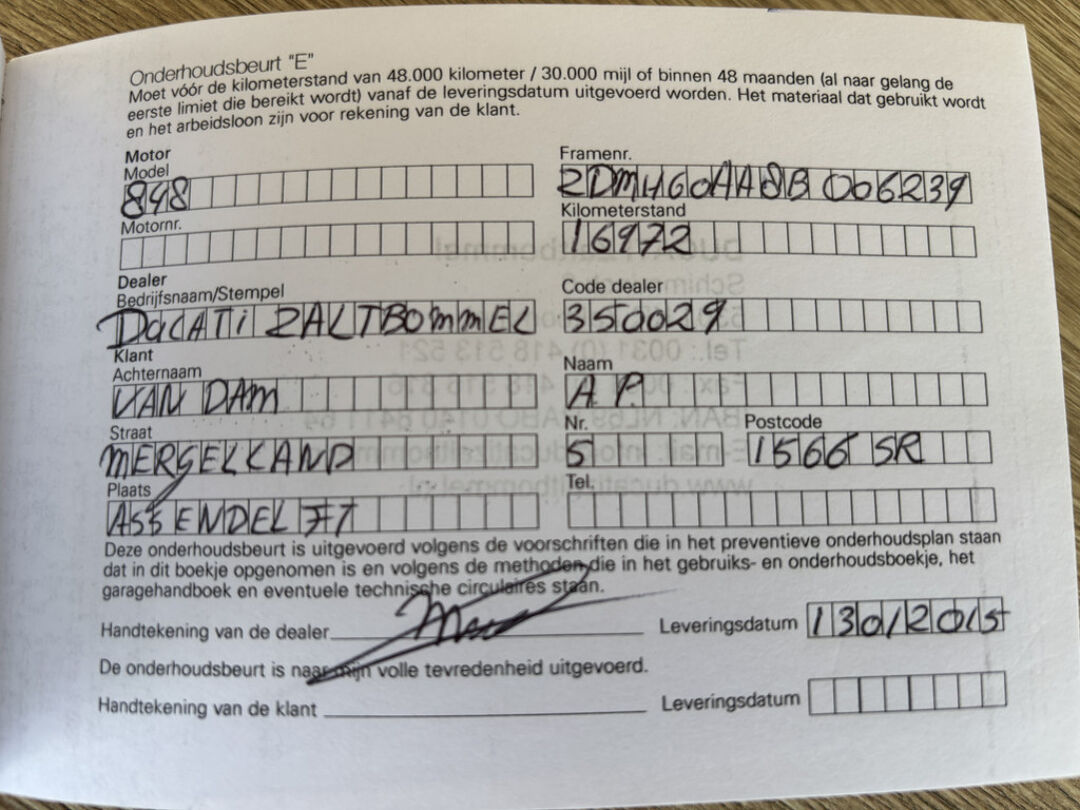 Onderhoudsbeurt "E"
Moet vóór de kilometerstand van 48.000 kilometer / 30.000 mijl of binnen 48 maanden (al naar gelang de
eerste limiet die bereikt wordt) vanaf de leveringsdatum uitgevoerd worden. Het materiaal dat gebruikt wordt
en het arbeidsloon zijn voor rekening van de klant.
Motor
Model
848
Framenr.
ZDMH60AA8B 006239
Motornr.
Kilometerstand
16972
Dealer
Bedrijfsnaam/Stempel
DUCATI ZALTBOMMEL
Code dealer
350029
Klant
Achternaam
VAN DAM
Naam
A P
Straat
MERGELLAND
Nr.
5
Postcode
1566 SR
Plaats
ASSENDELFT
Tel.
Deze onderhoudsbeurt is uitgevoerd volgens de voorschriften die in het preventieve onderhoudsplan staan
dat in dit boekje opgenomen is en volgens de methoden die in het gebruiks- en onderhoudsboekje, het
garagehandboek en eventuele technische circulaires staan.
Handtekening van de dealer
Leveringsdatum
De onderhoudsbeurt is naar mijn volle tevredenheid uitgevoerd.
Handtekening van de klant
Leveringsdatum